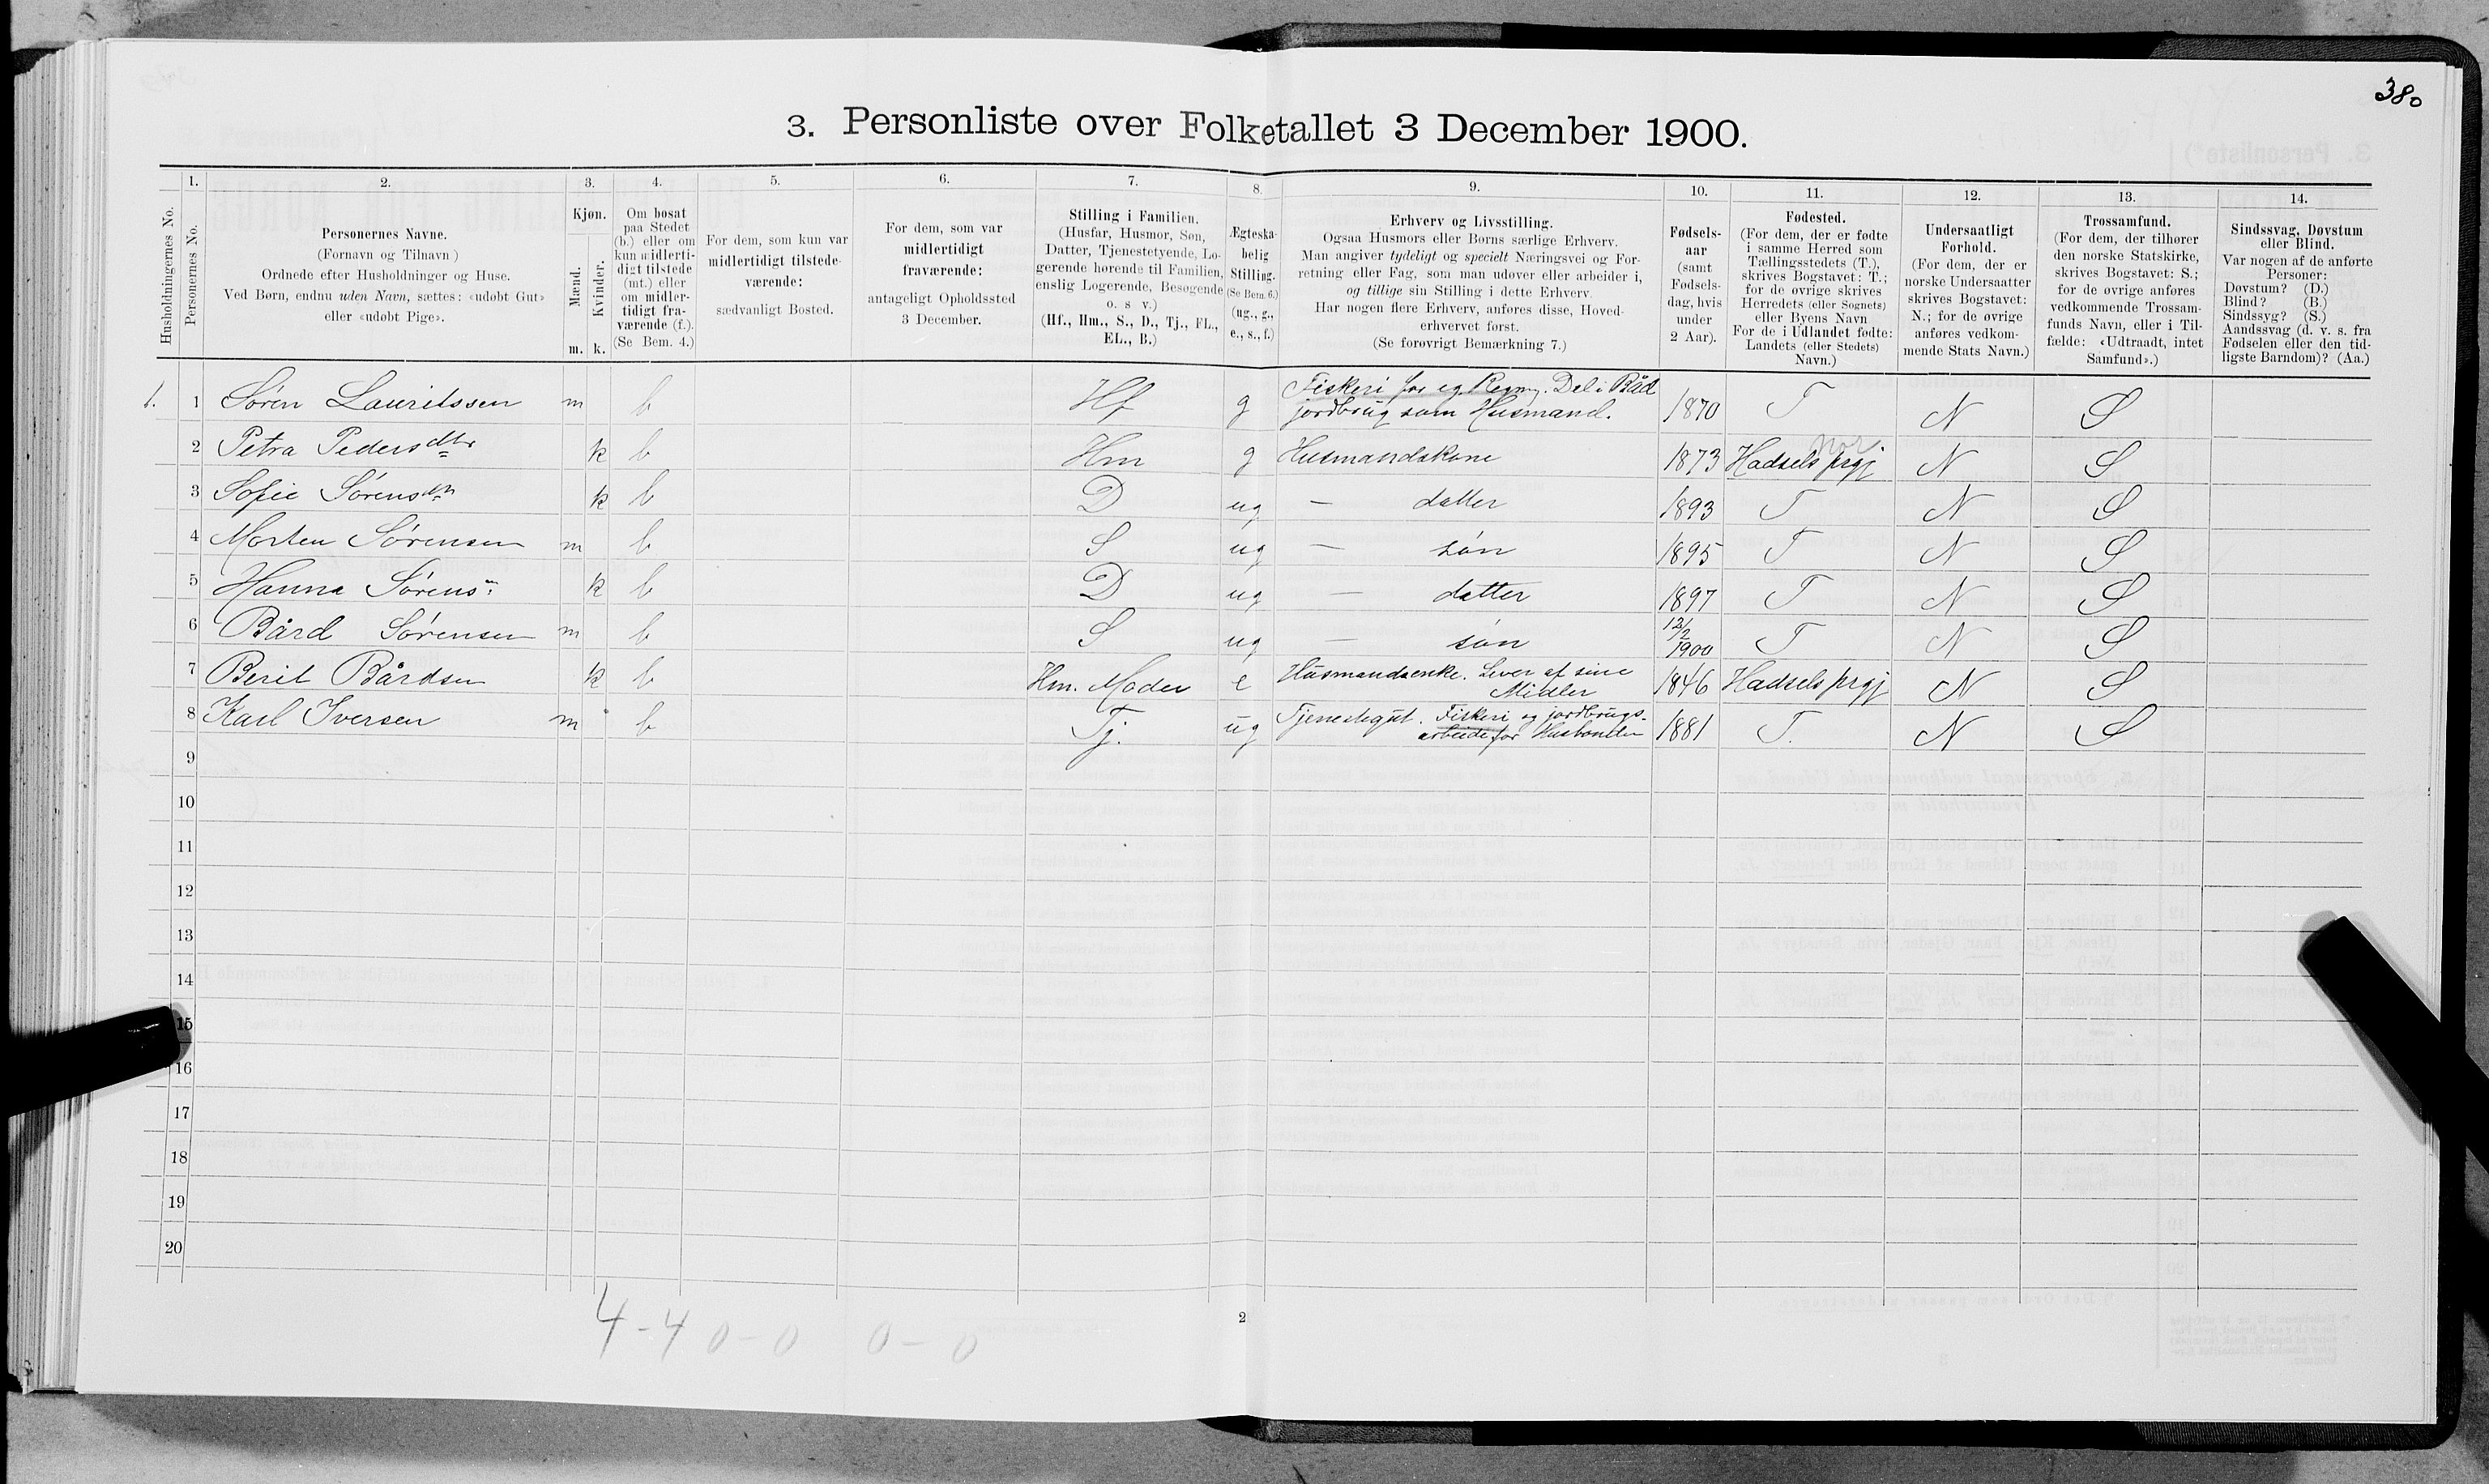 380
3. Personliste over Folketallet 3 December 1900.
Husholdningernes No.
1.
Personernes No.
2.
Personernes Navne.
(Fornavn og Tilnavn )
Ordnede efter Husholdninger og Huse.
Ved Børn, endnu uden Navn, sættes: «udøbt Gut»
eller «udøbt Pige».
3.
Kjøn.
Mænd.
m.
Kvinder.
k.
4.
Om bosat
paa Stedet
(b.) eller om
kun midlerti-
digt tilstede
(mt.) eller
om midler-
tidigt fra-
værende (f.).
(Se Bem. 4.)
5.
For dem, som kun var
midlertidigt tilstede-
værende:
sædvanligt Bosted.
6.
For dem, som var
midlertidigt
fraværende:
antageligt Opholdssted
3 December.
7.
Stilling i Familien.
(Husfar, Husmor, Søn,
Datter, Tjenestetyende, Lo-
gerende hørende til Familien,
enslig Logerende, Besøgende
o. s v.)
(Hf., Hm., S., D., Tj., FL.,
EL., B.)
8.
Ægteska-
belig
Stilling.
(Se Bem. 6.)
(ug., g.,
e., s., f.)
9.
Erhverv og Livsstilling.
Ogsaa Husmors eller Børns særlige Erhverv.
Man angiver tydeligt og specielt Næringsvei og For-
retning eller Fag, som man udøver eller arbeider i,
og tillige sin Stilling i dette Erhverv.
Har nogen flere Erhverv, anføres disse, Hoved-
erhvervet først.
(Se forøvrigt Bemærkning 7.)
10.
Fødsels-
aar
(samt
Fødsels-
dag, hvis
under
2 Aar).
11.
Fødested.
(For dem, der er fødte
i samme Herred som
Tællingsstedets (T.),
skrives Bogstavet: T.;
for de øvrige skrives
Herredets (eller Sognets)
eller Byens Navn
For de i Udlandet fødte:
Landets (eller Stedets)
Navn.)
12.
Undersaatligt
Forhold.
(For dem, der er
norske Undersaatter
skrives Bogstavet:
N.; for de øvrige
anføres vedkom-
mende Stats Navn.)
13.
Trossamfund.
(For dem, der tilhører
den norske Statskirke,
skrives Bogstavet: S.;
for de øvrige anføres
vedkommende Trossam-
funds Navn, eller i Til-
fælde: «Udtraadt, intet
Samfund».)
14.
Sindssvag, Døvstum
eller Blind.
Var nogen af de anførte
Personer:
Døvstum? (D.)
Blind? (B.)
Sindssyg? (S.)
Aandssvag (d. v. s. fra
Fødselen eller den tid-
ligste Barndom)? (Aa.)
1. 1 Søren Lauritssen m b Hf g Fiskeri for eg Regng. Del i Båd
jordbrug som Husmand. 1870 T N S
2 Petra Pedersdtr k b Hm g Husmandskone 1873 Hadsels prgj N S
3 Sofie Sørensdtr k b D ug — datter 1893 T N S
4 Morten Sørensen m b S ug — søn 1895 T N S
5 Hanna Sørens: k b D ug — datter 1897 T N S
6 Bård Sørensen m b S ug — søn 12/2 1900 T N S
7 Berit Bårdsen k b Hm. Moder e Husmandsenke. Lever af sine
Midler 1846 Hadsels prgj N S
8 Karl Iversen m b Tj. ug Tjenestegut. Fiskeri og jordbrugs-
arbeide for Husbonden 1881 T. N S
9
10
11
12
13
14
15
16
17
18
19
20
4 - 4 0 - 0 0 - 0
2